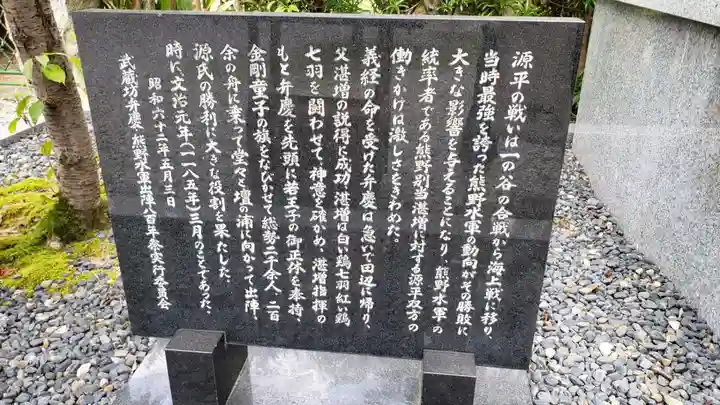 源平の戦いは一の谷の合戦から海上戦に移り、
当時最強を誇った熊野水軍の動向がその勝敗に
大きな影響を与えることになり、熊野水軍の
統率者である熊野別当湛増に対する源平双方の
働きかけは激しさをきわめた。
義経の命を受けた弁慶は急いで田辺に帰り、
父湛増の説得に成功、湛増は白い鶏七羽紅い鶏
七羽を闘わせて、神意を確かめ、湛増指揮の
もと弁慶を先頭に若王子の御正体を奉持、
金剛童子の旗をなびかせて総勢二千余人、二百
余の舟に乗って堂々と壇の浦に向かって出陣、
源氏の勝利に大きな役割を果たした。
時に文治元年(一一八五年)三月のことであった。
昭和六十二年五月三日
武蔵坊弁慶・熊野水軍出陣八百年祭実行委員会